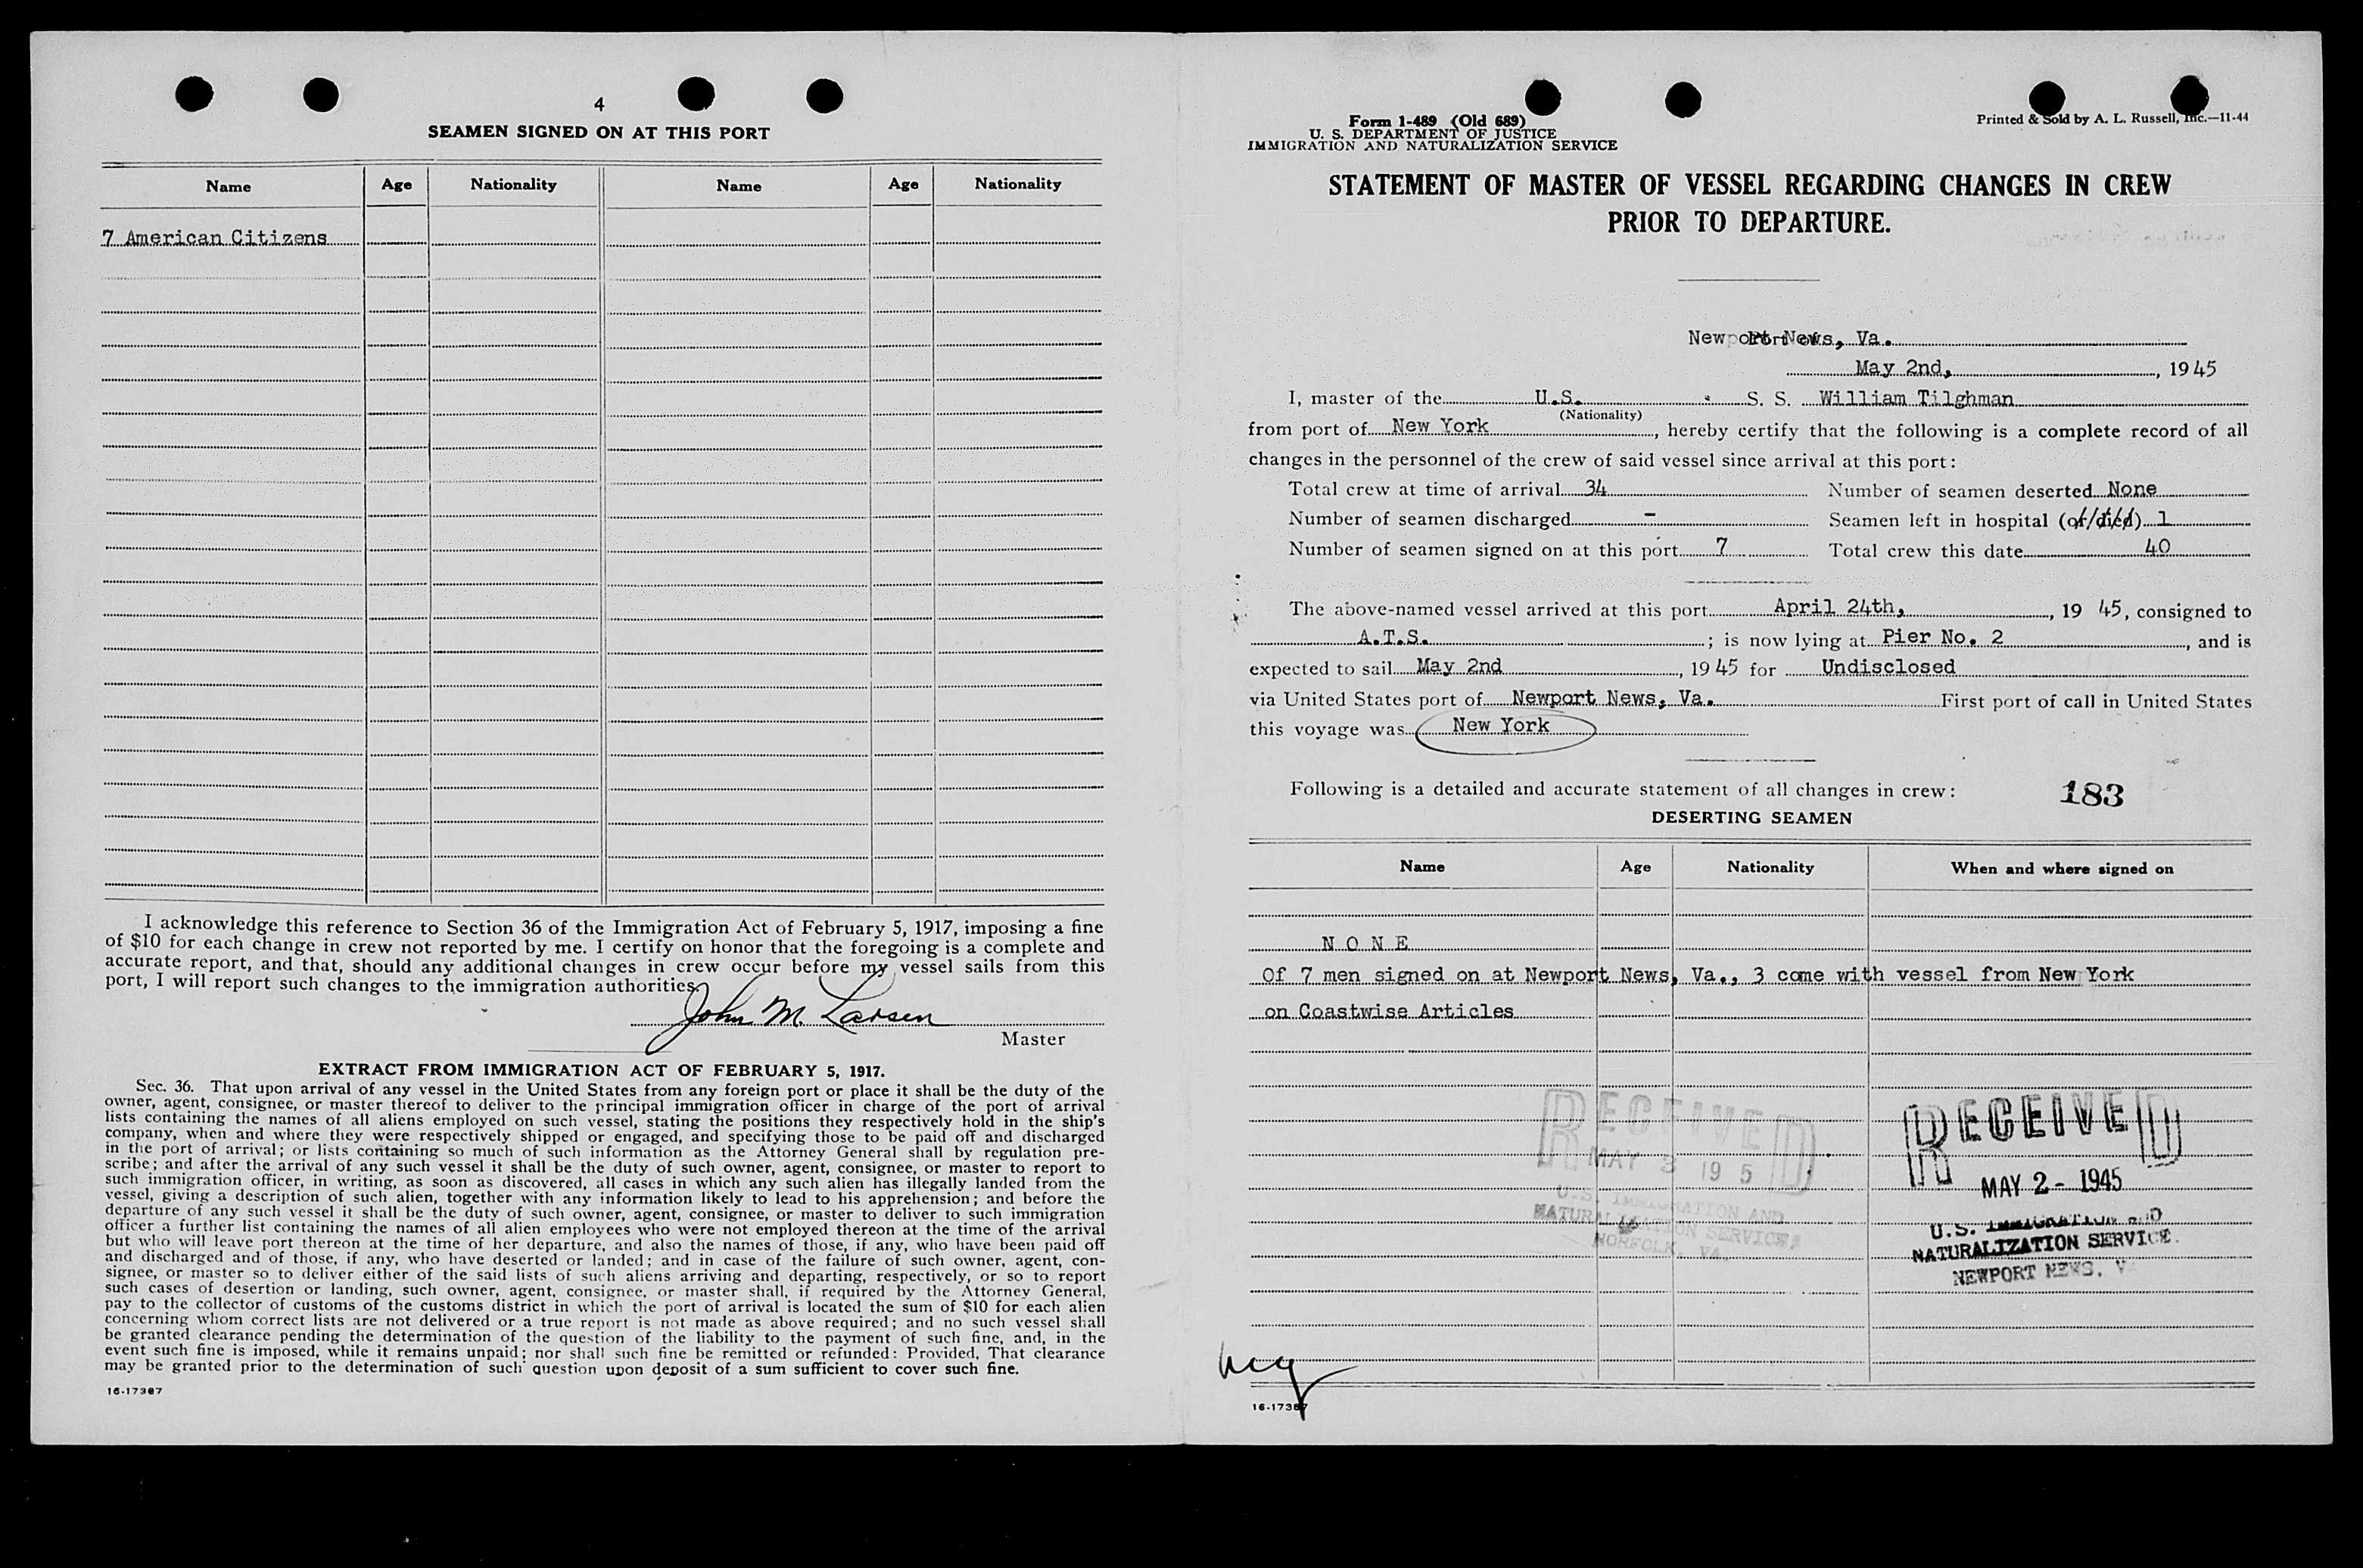 4
SEAMEN SIGNED ON AT THIS PORT
Name Age Nationality Name Age Nationality
7 American Citizens
I acknowledge this reference to Section 36 of the Immigration Act of February 5, 1917, imposing a fine
of $10 for each change in crew not reported by me. I certify on honor that the foregoing is a complete and
accurate report, and that, should any additional changes in crew occur before my vessel sails from this
port, I will report such changes to the immigration authorities.
John M. Larsen
Master
EXTRACT FROM IMMIGRATION ACT OF FEBRUARY 5, 1917.
Sec. 36. That upon arrival of any vessel in the United States from any foreign port or place it shall be the duty of the
owner, agent, consignee, or master thereof to deliver to the principal immigration officer in charge of the port of arrival
lists containing the names of all aliens employed on such vessel, stating the positions they respectively hold in the ship's
company, when and where they were respectively shipped or engaged, and specifying those to be paid off and discharged
in the port of arrival; or lists containing so much of such information as the Attorney General shall by regulation pre-
scribe; and after the arrival of any such vessel it shall be the duty of such owner, agent, consignee, or master to report to
such immigration officer, in writing, as soon as discovered, all cases in which any such alien has illegally landed from the
vessel, giving a description of such alien, together with any information likely to lead to his apprehension; and before the
departure of any such vessel it shall be the duty of such owner, agent, consignee, or master to deliver to such immigration
officer a further list containing the names of all alien employees who were not employed thereon at the time of the arrival
but who will leave port thereon at the time of her departure, and also the names of those, if any, who have been paid off
and discharged and of those, if any, who have deserted or landed; and in case of the failure of such owner, agent, con-
signee, or master so to deliver either of the said lists of such aliens arriving and departing, respectively, or so to report
such cases of desertion or landing, such owner, agent, consignee, or master shall, if required by the Attorney General,
pay to the collector of customs of the customs district in which the port of arrival is located the sum of $10 for each alien
concerning whom correct lists are not delivered or a true report is not made as above required; and no such vessel shall
be granted clearance pending the determination of the question of the liability to the payment of such fine, and, in the
event such fine is imposed, while it remains unpaid; nor shall such fine be remitted or refunded: Provided, That clearance
may be granted prior to the determination of such question upon deposit of a sum sufficient to cover such fine.
16-17387
Form 1-489 (Old 689)
U. S. DEPARTMENT OF JUSTICE
IMMIGRATION AND NATURALIZATION SERVICE
Printed & Sold by A. L. Russell, Inc.—11-44
STATEMENT OF MASTER OF VESSEL REGARDING CHANGES IN CREW
PRIOR TO DEPARTURE.
Port of Newport News, Va.
May 2nd, , 1945
I, master of the U.S. S. S. William Tilghman
(Nationality)
from port of New York , hereby certify that the following is a complete record of all
changes in the personnel of the crew of said vessel since arrival at this port:
Total crew at time of arrival 34 Number of seamen deserted None
Number of seamen discharged - Seamen left in hospital (or died) 1
Number of seamen signed on at this port 7 Total crew this date 40
The above-named vessel arrived at this port April 24th, , 19 45, consigned to
A.T.S. ; is now lying at Pier No. 2 , and is
expected to sail May 2nd , 1945 for Undisclosed
via United States port of Newport News, Va. First port of call in United States
this voyage was New York
Following is a detailed and accurate statement of all changes in crew: 183
DESERTING SEAMEN
Name Age Nationality When and where signed on
N O N E
Of 7 men signed on at Newport News, Va., 3 come with vessel from New York
on Coastwise Articles
RECEIVED
MAY 3 19 5
U.S. IMMIGRATION AND
NATURALIZATION SERVICE
NORFOLK, VA.
RECEIVED
MAY 2 - 1945
U.S. IMMIGRATION AND
NATURALIZATION SERVICE.
NEWPORT NEWS, V
16-17387